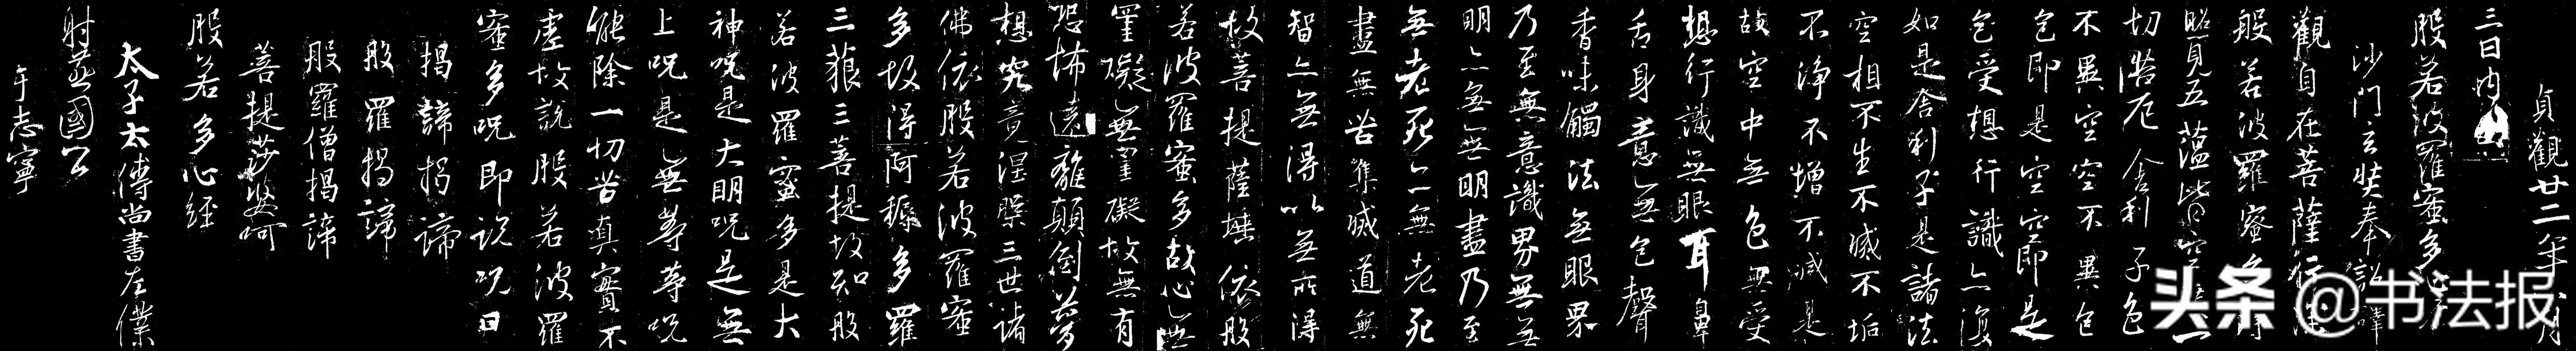 貞觀廿二年八月
三日內出
般若波羅蜜多心經
沙門玄奘奉詔譯
觀自在菩薩行深
般若波羅蜜多時
照見五蘊皆空度一
切苦厄舍利子色
不異空空不異色
色即是空空即是
色受想行識亦復
如是舍利子是諸法
空相不生不滅不垢
不淨不增不減是
故空中無色無受
想行識無眼耳鼻
舌身意無色聲
香味觸法無眼界
乃至無意識界無無
明亦無無明盡乃至
無老死亦無老死
盡無苦集滅道無
智亦無得以無所得
故菩提薩埵依般
若波羅蜜多故心無
罣礙無罣礙故無有
恐怖遠離顛倒夢
想究竟涅槃三世諸
佛依般若波羅蜜
多故得阿耨多羅
三藐三菩提故知般
若波羅蜜多是大
神呪是大明呪是無
上呪是無等等呪
能除一切苦真實不
虛故說般若波羅
蜜多呪即說呪曰
揭諦揭諦
般羅揭諦
般羅僧揭諦
菩提莎婆呵
般若多心經
太子太傅尚書左僕
射燕國公
于志寧
头条 @书法报